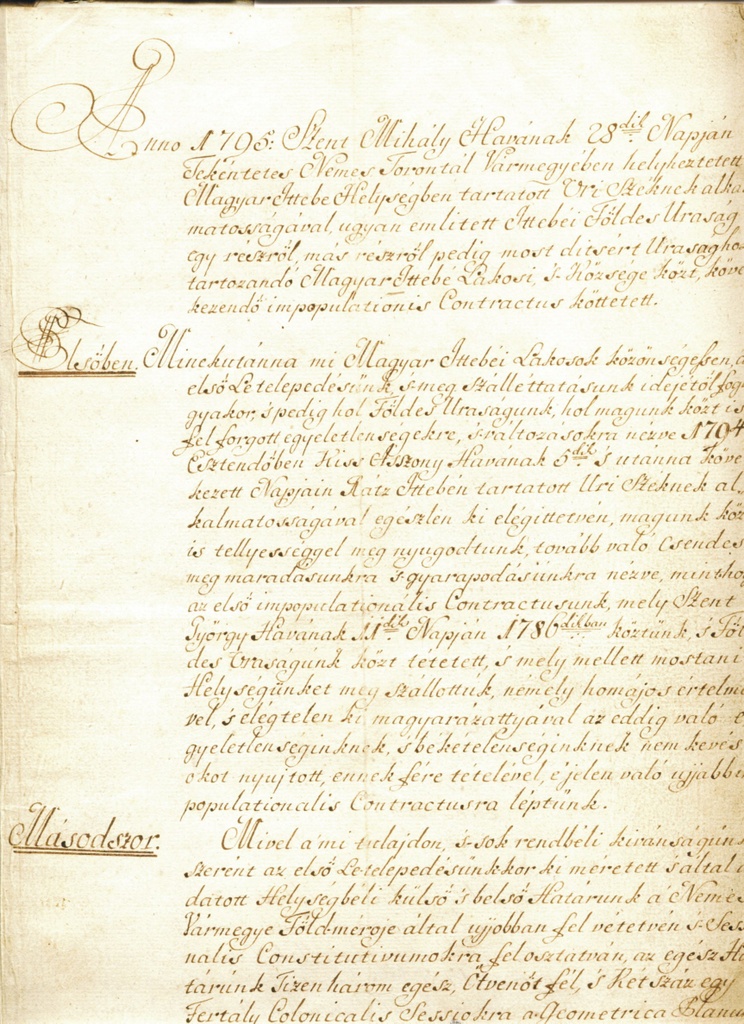 Anno 1795: Szent Mihály Havának 28dik Napján
Tekéntetes Nemes Torontál Vármegyében helyheztetett
Magyar Ittebe Helységben tartatott Úri Széknek alka
matosságával, ugyan emlitett Ittebéi Földes Uraság
egy részről, más részről pedig most ditsért Uraságho
tartozandó Magyar Ittebé Lakosi, 's Községe közt, köve
kezendő impopulationis Contractus köttetett.
Elsőben. Minekutánna mi Magyar Ittebéi Lakosok közönségessen, a
első Le telepedésünk, 's meg szálléttatásunk idejétől fog
gyakor, 's pedig hol Földes Uraságunk, hol magunk közt is
fel forgott egyeletlenségekre, 's változásokra nézve 1794
Esztendőben Kiss Asszony Havának 5dik 's utánna köve
kezett Napjain Rátz Ittebén tartatott Uri Széknek al
kalmatosságával egészlen ki elégittetvén, magunk köz
is tellyességgel meg nyugodtunk, tovább való csendes
meg maradásunkra 's gyarapodásunkra nézve, mintho
az első impopulationális Contractusunk, mely Szent
György Havának 11dik Napján 1786dikban köztünk, 's Föl
des Uraságunk közt tétetett, 's mely mellett mostani
Helységünket meg szállottuk, némely homájos értelmé
vel, 's elégtelen ki magyarázattyával az eddig való e
gyeletlenséginknek, 's békételenséginknek nem kevés
okot nyujtott, ennek fére tételével, e' jelen való ujjabb im
populationalis Contractusra léptünk.
Másodszor. Mivel a' mi tulajdon, 's sok rendbéli kivánságunk
szerént az első Le telepedésünkkor ki méretett 's által a
datott Helységbéli külső 's belső Határunk a' Neme
Vármegye Földmérője által ujjobban fel vétetvén 's Sess
nalis Constitutivumokra fel osztatván, az egész Ha
tárunk Tizenhárom egész, Ötvenöt fél, 's Két száz egy
Fertály Colonicalis Sessiokra a' Geometrica Planu